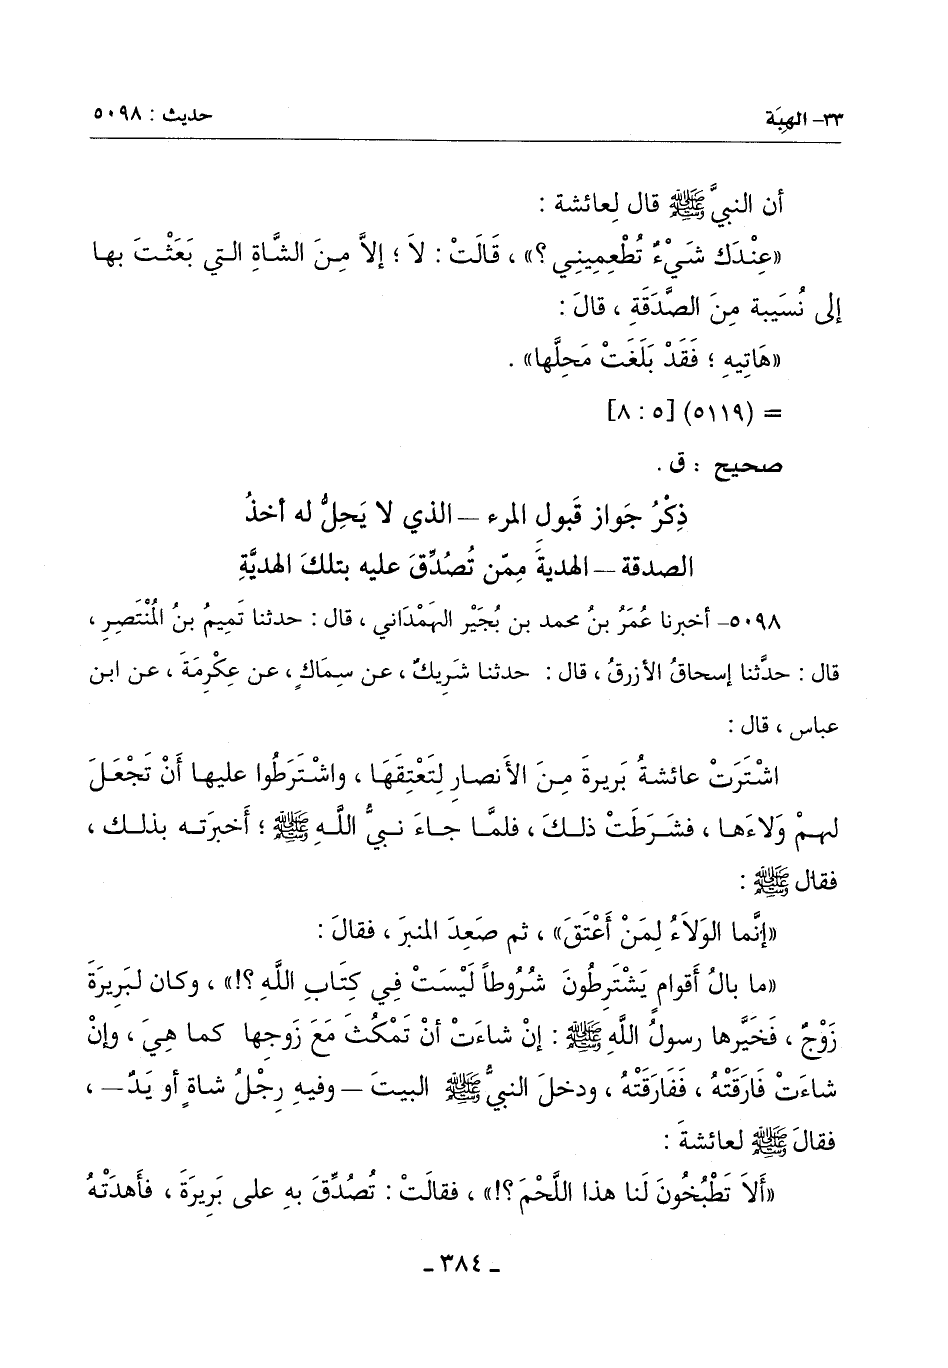 ٣٣- الهِبَة حديث : ٥٠٩٨
أن النبيَّ ﷺ قال لِعائشة :
«عِنْدَك شَيْءٌ تُطْعِمِيني ؟» ، قَالَتْ : لاَ ؛ إلاَّ مِنَ الشَّاةِ التي بَعَثْتَ بها
إلى نُسَيبة مِنَ الصَّدَقَةِ ، قالَ :
«هَاتِيهِ ؛ فَقَدْ بَلَغَتْ مَحِلَّها» .
= (٥١١٩) [٥ : ٨]
صحيح : ق .
ذِكْرُ جَواز قَبول المرء – الذي لا يَحِلُّ له أخذُ
الصدقة – الهديةَ مِمّن تُصُدِّقَ عليه بتلكَ الهديَّةِ
٥٠٩٨- أخبرنا عُمَرُ بنُ محمد بن بُجَيْر الهَمْدَاني ، قال : حدثنا تَميمُ بنُ المُنْتَصِرِ ،
قال : حدَّثنا إسحاقُ الأزرقُ ، قال : حدثنا شَريكٌ ، عن سِماكٍ ، عن عِكْرِمَةَ ، عن ابن
عباس ، قال :
اشْتَرَتْ عائشةُ بَريرةَ مِنَ الأنصارِ لِتَعْتِقَهَا ، واشْتَرَطُوا عليها أَنْ تَجْعَلَ
لهمْ وَلاءَها ، فشَرَطَتْ ذلكَ ، فلمَّا جاءَ نبيُّ اللَّهِ ﷺ ؛ أَخبرَته بذلك ،
فقال ﷺ :
«إنَّما الوَلاَءُ لِمَنْ أَعْتَقَ» ، ثم صَعِدَ المنبرَ ، فقالَ :
«ما بالُ أقوامٍ يَشْتَرِطُونَ شُرُوطاً لَيْسَتْ فِي كِتَابِ اللَّهِ ؟!» ، وكان لبَرِيرَةَ
زَوْجٌ ، فَخَيَّرها رسولُ اللَّهِ ﷺ : إنْ شاءَتْ أنْ تَمْكُثَ مَعَ زَوجِها كما هِيَ ، وإنْ
شاءَتْ فَارَقَتْهُ ، فَفَارقَتْهُ ، ودخلَ النبيُّ ﷺ البيتَ – وفيهِ رِجْلُ شاةٍ أو يَدٌ – ،
فقالَ ﷺ لعائشةَ :
«أَلاَ تَطْبُخُونَ لَنا هذا اللَّحْمَ ؟!» ، فقالَتْ : تُصُدِّقَ بِهِ على بَرِيرَةَ ، فأَهدَتْهُ
- ٣٨٤ -